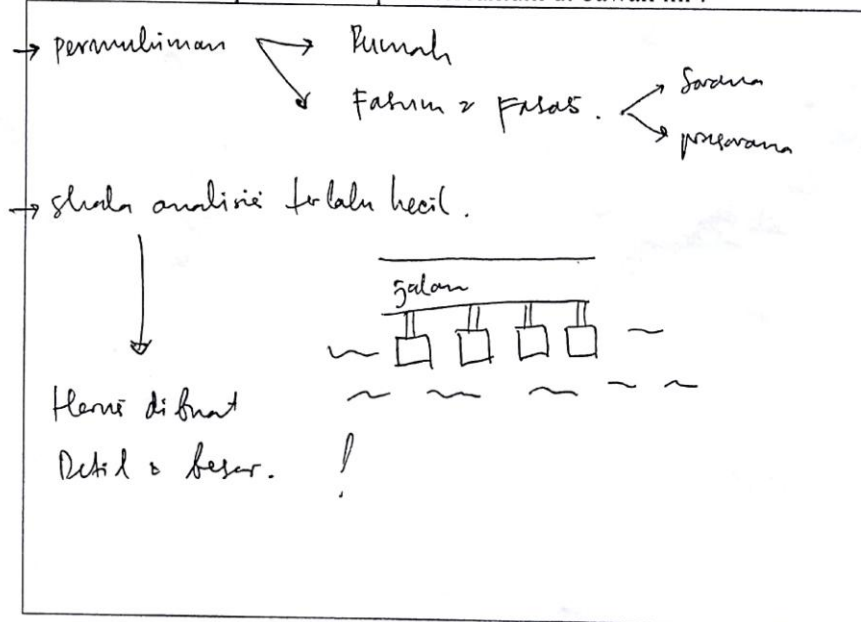 → permukiman → Rumah
→ Fasum & Fasos. → Sarana
→ prasarana
→ skala analisis terlalu kecil.
Jalan
Harus dibuat
Detil & besar. !